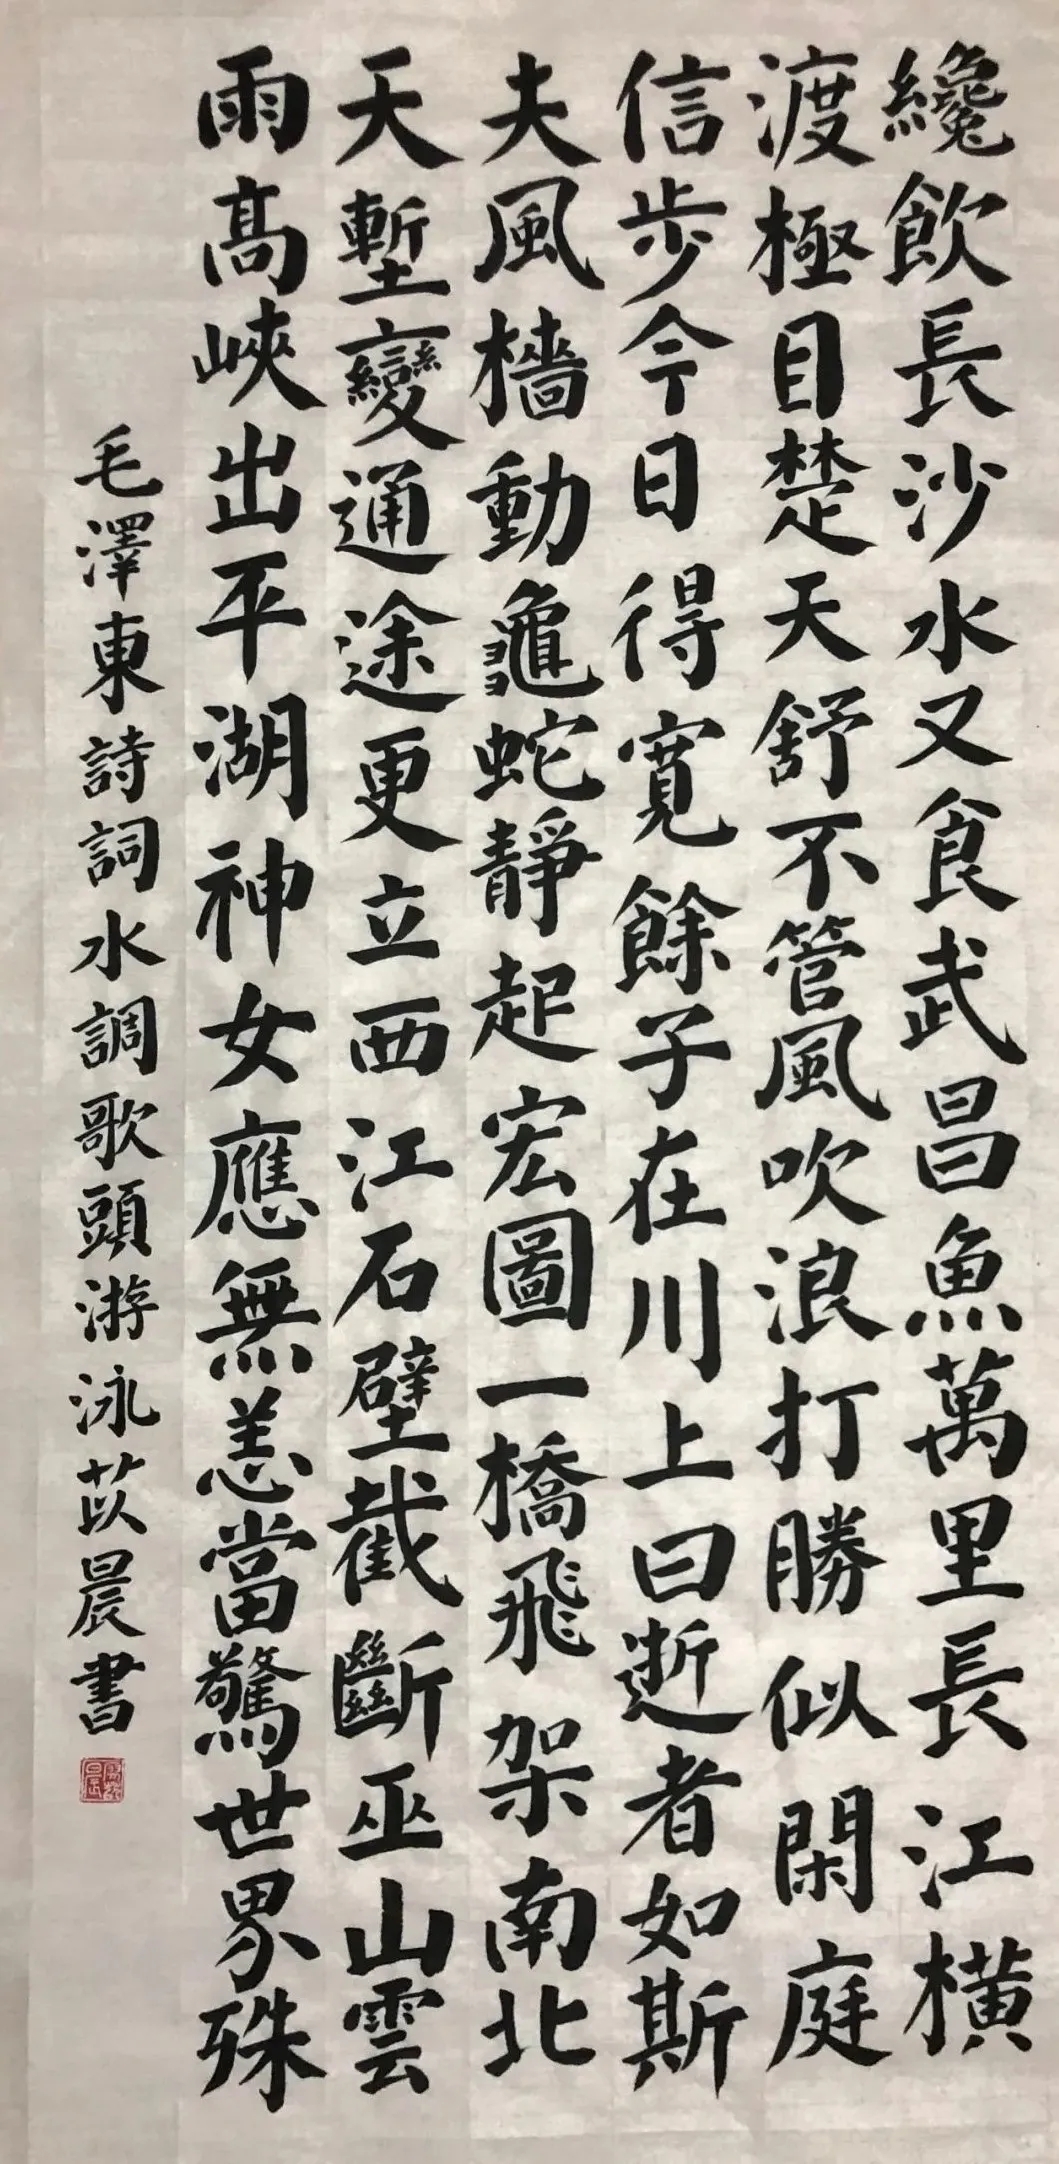 纔飲長沙水又食武昌魚萬里長江橫
渡極目楚天舒不管風吹浪打勝似閑庭
信步今日得寬餘子在川上曰逝者如斯
夫風檣動龜蛇靜起宏圖一橋飛架南北
天塹變通途更立西江石壁截斷巫山雲
雨高峽出平湖神女應無恙當驚世界殊
毛澤東詩詞水調歌頭游泳苡晨書